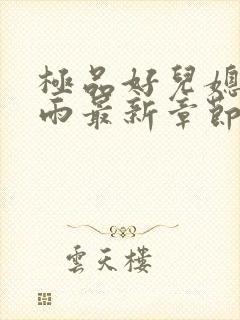 極品好兒媳
雨最新章節
雲天樓